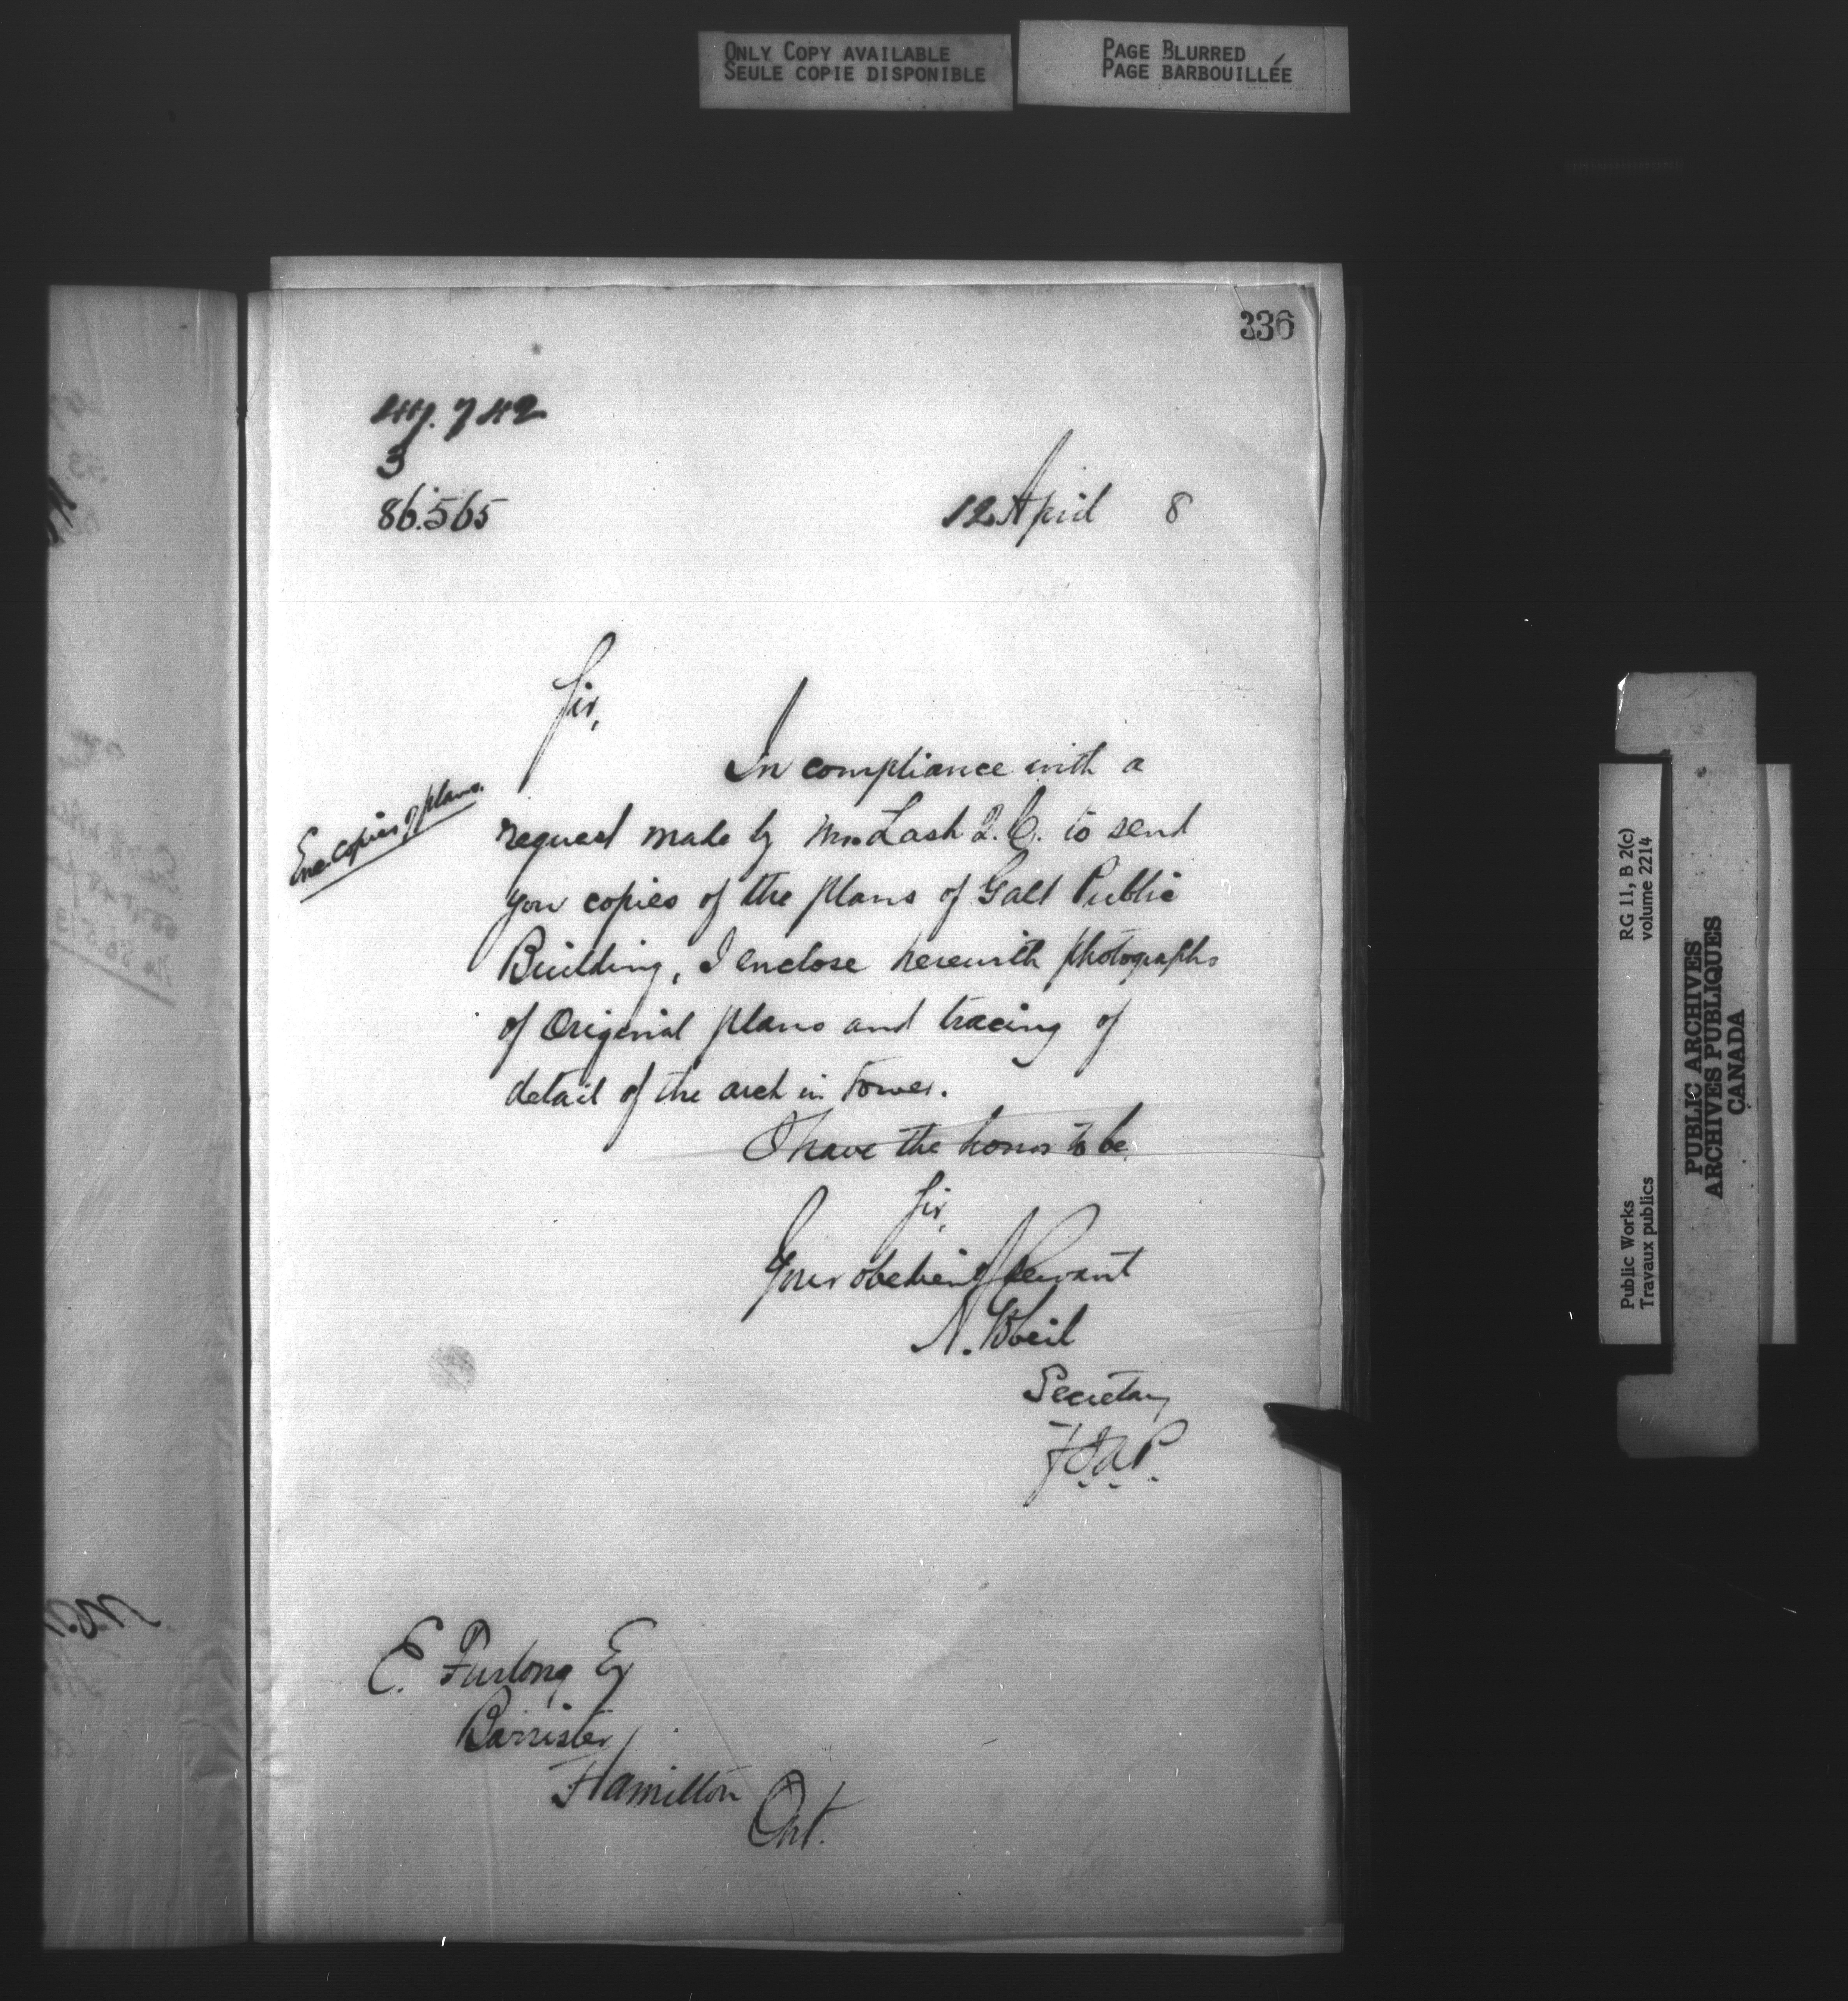 ONLY COPY AVAILABLE
SEULE COPIE DISPONIBLE
PAGE BLURRED
PAGE BARBOUILLÉE
336
742
3
86.565
12 April 8
Sir,
In compliance with a
request made by Mr. Lash Q.C. to send
you copies of the plans of Galt Public
Building, I enclose herewith photographs
of Original plans and tracing of
detail of the arch in tower.
I have the honor to be
Sir,
Your obedient Servant
Secretary
Enc. copies of plans.
E. Furlong Esq
Barrister
Hamilton
Ont.
Public Works
Travaux publics
RG 11, B 2(c)
volume 2214
PUBLIC ARCHIVES
ARCHIVES PUBLIQUES
CANADA